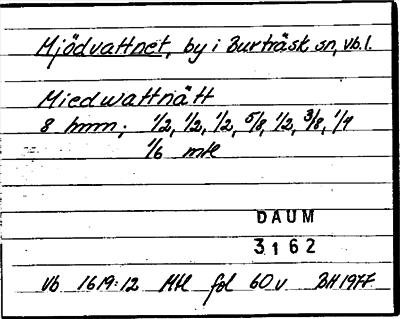 Mjödvattnet, by i Burträsk sn, Vb. l.
Miedwattnätt
8 hmn; 1/2, 1/2, 1/2, 5/8, 1/2, 3/8, 1/4
1/6 mtl
DAUM
3162
Vb 1619:12 Mtl fol 60v BH 1977